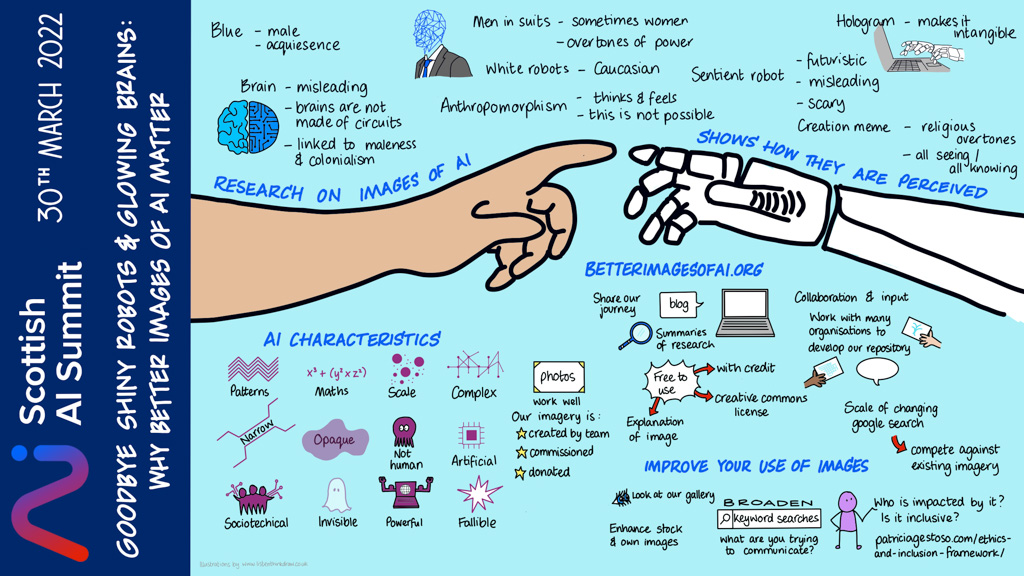 Scottish
AI Summit
30TH MARCH 2022
GOODBYE SHINY ROBOTS & GLOWING BRAINS:
WHY BETTER IMAGES OF AI MATTER
Blue - male
- acquiesence
Brain - misleading
- brains are not
made of circuits
- linked to maleness
& colonialism
Men in suits - sometimes women
- overtones of power
White robots - Caucasian
Anthropomorphism - thinks & feels
- this is not possible
Sentient robot
- futuristic
- misleading
- scary
Hologram - makes it
intangible
Creation meme - religious
overtones
- all seeing /
all knowing
RESEARCH ON IMAGES OF AI
SHOWS HOW THEY ARE PERCEIVED
AI CHARACTERISTICS
Patterns
x³ + (y² x z²)
Maths
Scale
Complex
Narrow
Opaque
Not
human
Artificial
Sociotechical
Invisible
Powerful
Fallible
photos
work well
Our imagery is:
created by team
commissioned
donated
BETTERIMAGESOFAI.ORG
Share our
journey
blog
Summaries
of research
Free to
use
with credit
creative commons
license
Explanation
of image
Collaboration & input
Work with many
organisations to
develop our repository
Scale of changing
google search
compete against
existing imagery
IMPROVE YOUR USE OF IMAGES
Look at our gallery
Enhance stock
& own images
BROADEN
keyword searches
what are you trying
to communicate?
Who is impacted by it?
Is it inclusive?
patriciagestoso.com/ethics-
and-inclusion-framework/